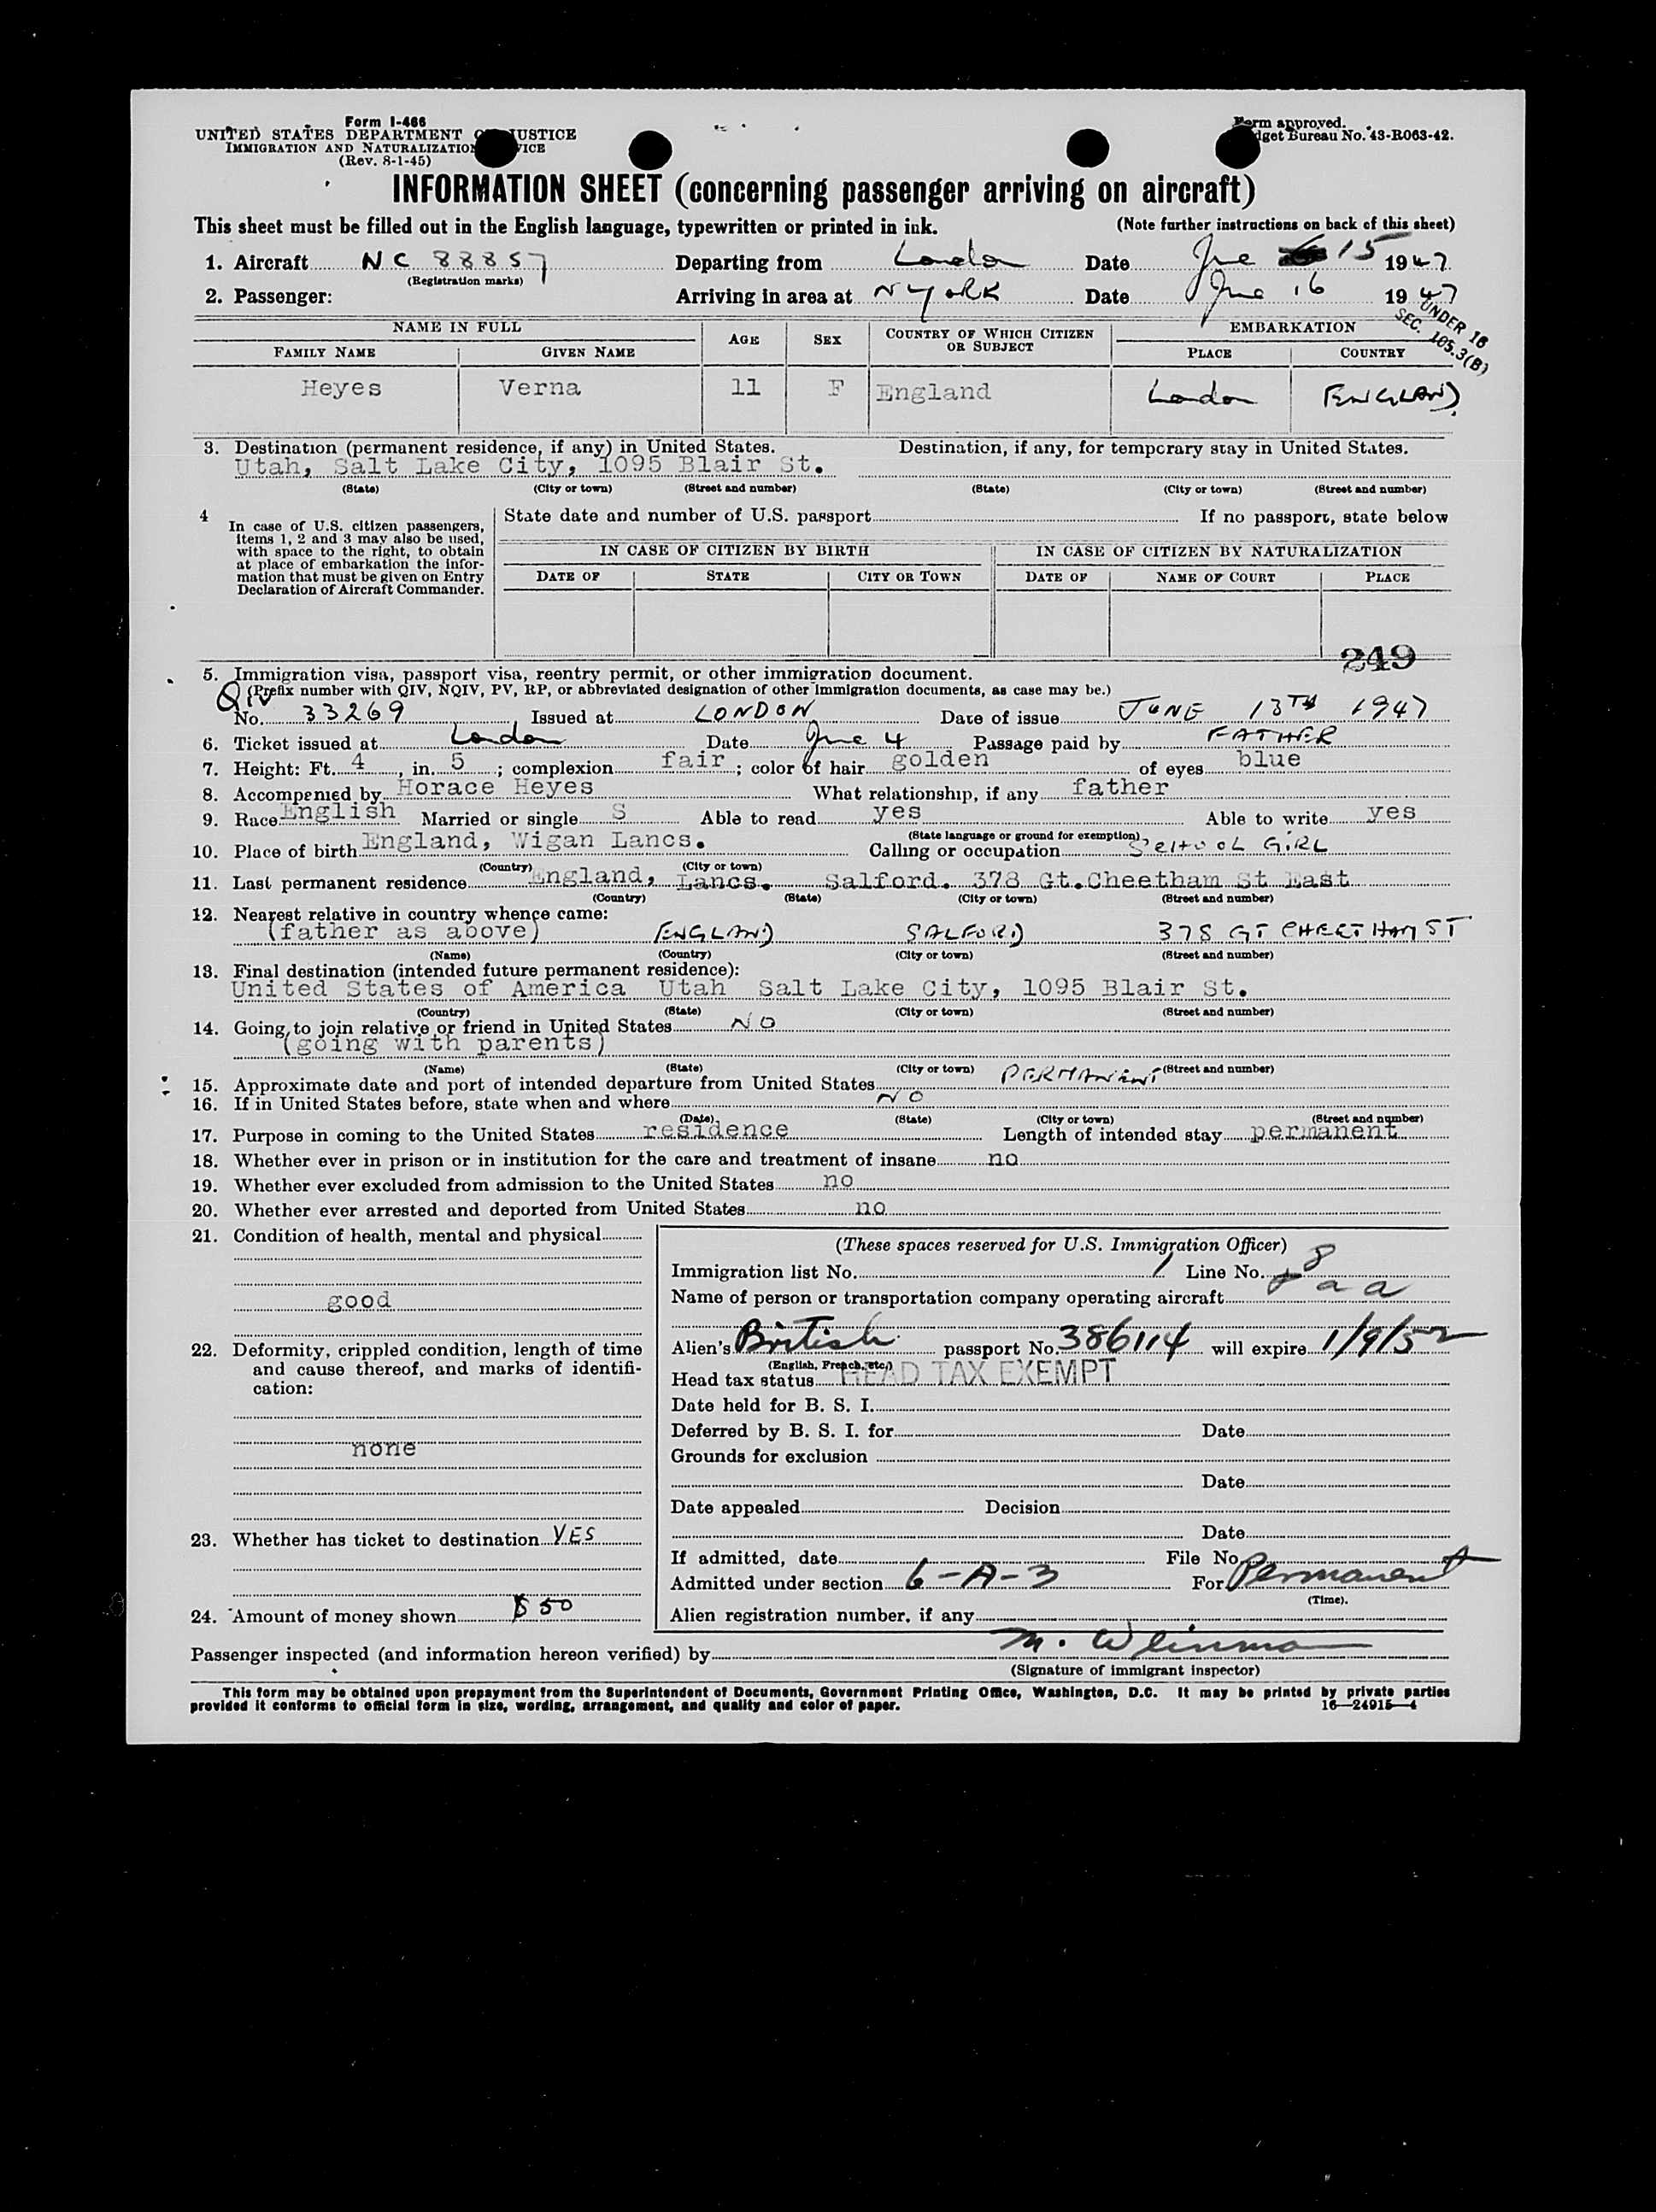 Form I-466
UNITED STATES DEPARTMENT OF JUSTICE
IMMIGRATION AND NATURALIZATION SERVICE
(Rev. 8-1-45)
Form approved.
Budget Bureau No. 43-R063-42.
INFORMATION SHEET (concerning passenger arriving on aircraft)
This sheet must be filled out in the English language, typewritten or printed in ink. (Note further instructions on back of this sheet)
1. Aircraft NC 88857 Departing from London Date June 15 1947
(Registration marks)
2. Passenger: Arriving in area at N YORK Date June 16 1947
UNDER 16
SEC. 105.3(B)
NAME IN FULL AGE SEX COUNTRY OF WHICH CITIZEN OR SUBJECT EMBARKATION
FAMILY NAME GIVEN NAME PLACE COUNTRY
Heyes Verna 11 F England London ENGLAND
3. Destination (permanent residence, if any) in United States. Destination, if any, for temporary stay in United States.
Utah, Salt Lake City, 1095 Blair St.
(State) (City or town) (Street and number) (State) (City or town) (Street and number)
4 In case of U.S. citizen passengers, items 1, 2 and 3 may also be used, with space to the right, to obtain at place of embarkation the information that must be given on Entry Declaration of Aircraft Commander.
State date and number of U.S. passport If no passport, state below
IN CASE OF CITIZEN BY BIRTH IN CASE OF CITIZEN BY NATURALIZATION
DATE OF STATE CITY OR TOWN DATE OF NAME OF COURT PLACE
249
5. Immigration visa, passport visa, reentry permit, or other immigration document.
(Prefix number with QIV, NQIV, PV, RP, or abbreviated designation of other immigration documents, as case may be.)
QIV
No. 33269 Issued at LONDON Date of issue JUNE 13TH 1947
6. Ticket issued at London Date June 4 Passage paid by FATHER
7. Height: Ft. 4, in. 5; complexion fair; color of hair golden of eyes blue
8. Accompanied by Horace Heyes What relationship, if any father
9. Race English Married or single S Able to read yes Able to write yes
(State language or ground for exemption)
10. Place of birth England, Wigan Lancs. Calling or occupation SCHOOL GIRL
(Country) (City or town)
11. Last permanent residence England, Lancs. Salford. 378 Gt.Cheetham St East
(Country) (State) (City or town) (Street and number)
12. Nearest relative in country whence came:
(father as above) ENGLAND SALFORD 378 GT CHEETHAM ST
(Name) (Country) (City or town) (Street and number)
13. Final destination (intended future permanent residence):
United States of America Utah Salt Lake City, 1095 Blair St.
(Country) (State) (City or town) (Street and number)
14. Going to join relative or friend in United States NO
(going with parents)
(Name) (State) (City or town) (Street and number)
15. Approximate date and port of intended departure from United States PERMANENT
16. If in United States before, state when and where NO
(Date) (State) (City or town) (Street and number)
17. Purpose in coming to the United States residence Length of intended stay permanent
18. Whether ever in prison or in institution for the care and treatment of insane no
19. Whether ever excluded from admission to the United States no
20. Whether ever arrested and deported from United States no
21. Condition of health, mental and physical
good
22. Deformity, crippled condition, length of time and cause thereof, and marks of identification:
none
23. Whether has ticket to destination YES
24. Amount of money shown $50
(These spaces reserved for U.S. Immigration Officer)
Immigration list No. 1 Line No. 8
Name of person or transportation company operating aircraft
Alien's British passport No. 386114 will expire 1/9/52
(English, French, etc.)
Head tax status HEAD TAX EXEMPT
Date held for B. S. I.
Deferred by B. S. I. for Date
Grounds for exclusion
Date
Date appealed Decision
Date
If admitted, date File No.
Admitted under section 6-A-3 For Permanent
(Time).
Alien registration number, if any
Passenger inspected (and information hereon verified) by M. Weinman
(Signature of immigrant inspector)
This form may be obtained upon prepayment from the Superintendent of Documents, Government Printing Office, Washington, D.C. It may be printed by private parties
provided it conforms to official form in size, wording, arrangement, and quality and color of paper. 16—24915—4